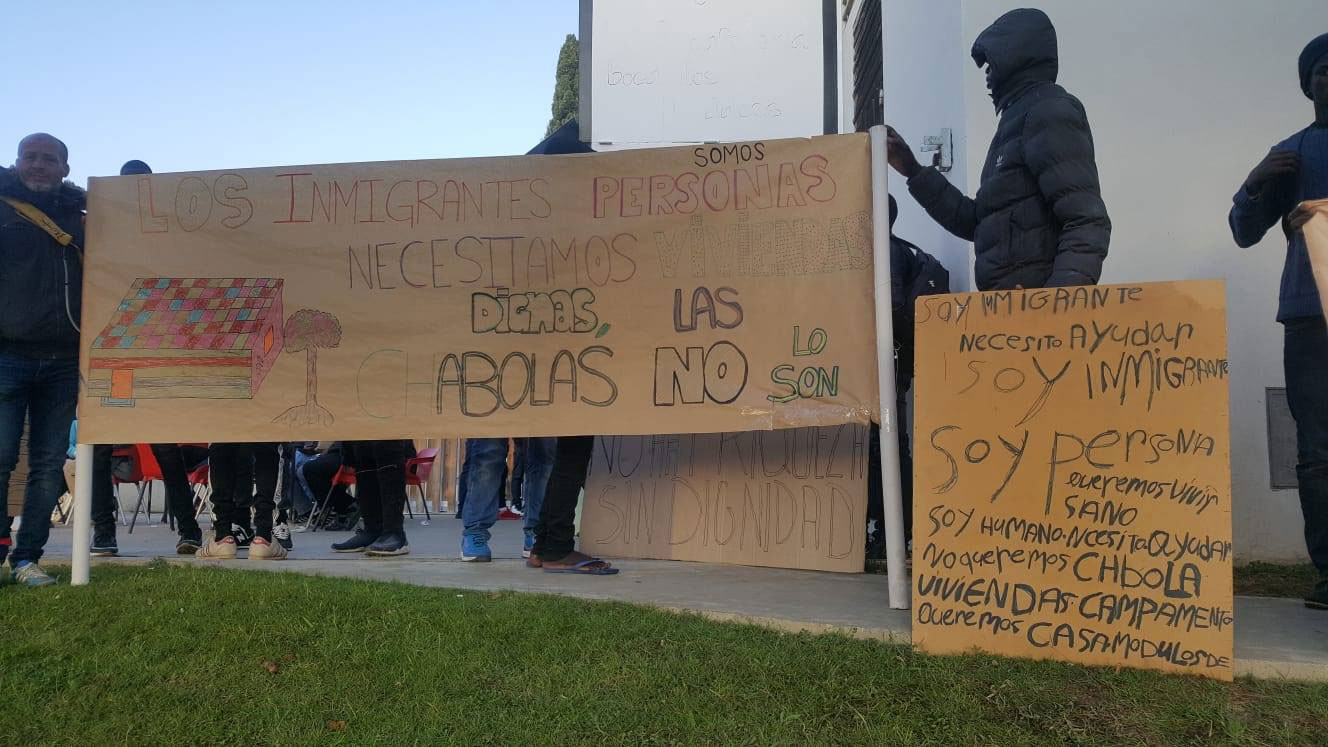 SOMOS
LOS INMIGRANTES PERSONAS
NECESITAMOS VIVIENDAS
DIGNAS, LAS
CHABOLAS NO LO
SON
NO HAY RIQUEZA
SIN DIGNIDAD
SOY INMIGRANTE
NECESITO AYUDAR
SOY INMIGRANTE
SOY persona
queremos vivir
SANO
SOY HUMANO. Ncesita ayudar
No queremos CHboLA
VIVIENDAS. CAMPAMENTO
Queremos CASA MODULOS DE